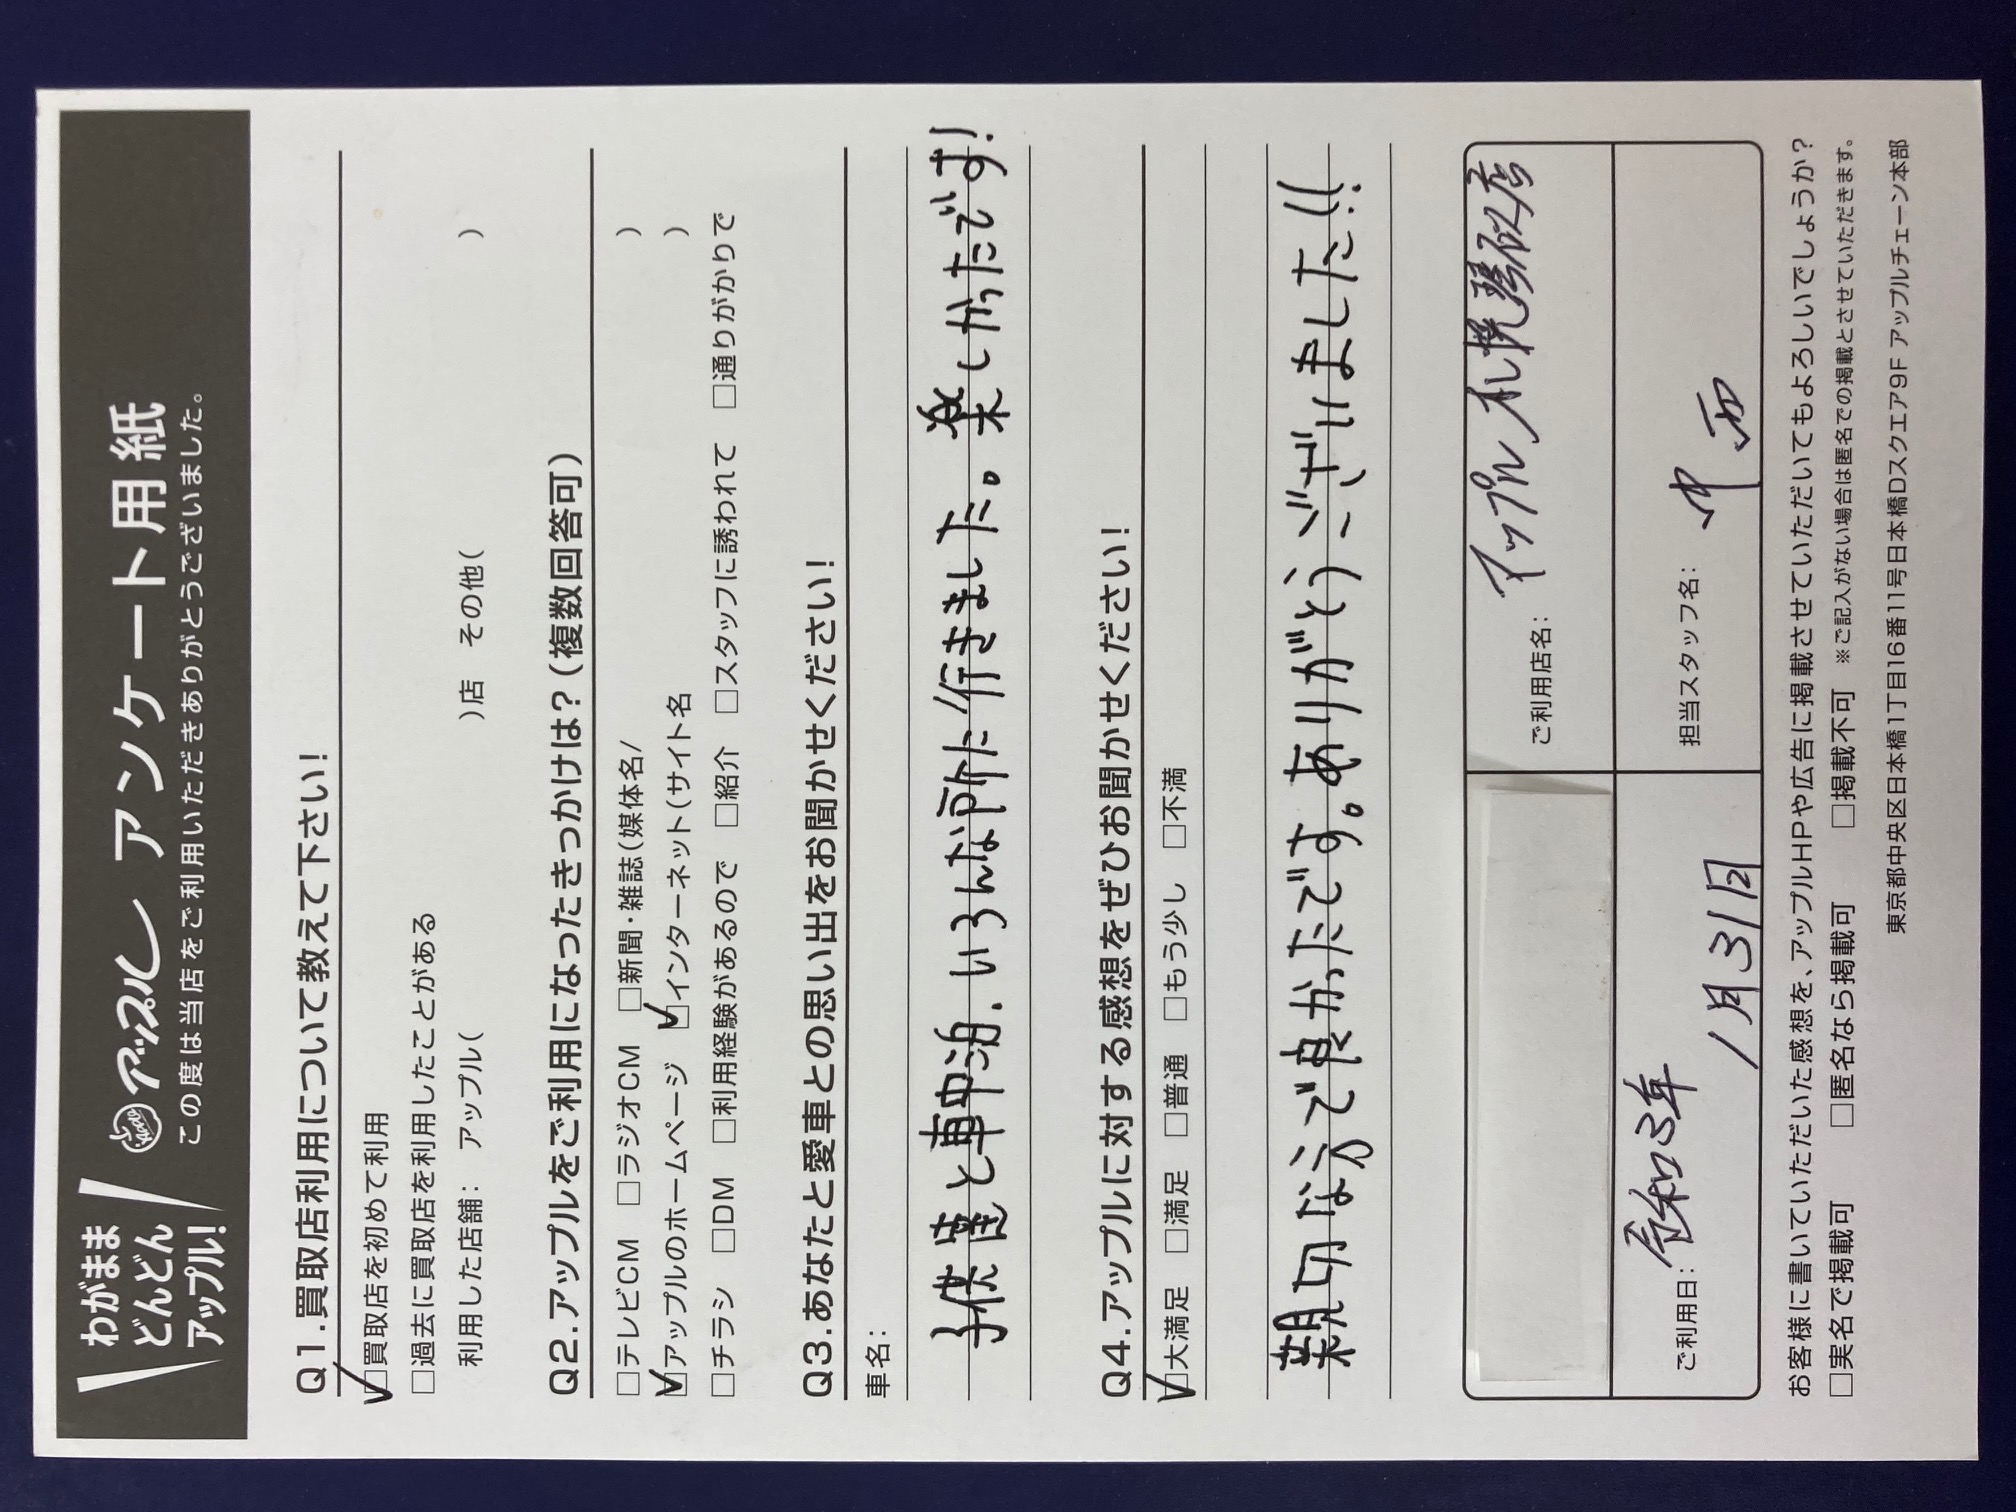 わがまま
どんどん
アップル!
アップル アンケート用紙
この度は当店をご利用いただきありがとうございました。
Q1.買取店利用について教えて下さい!
☑買取店を初めて利用
□過去に買取店を利用したことがある
利用した店舗: アップル( )店 その他( )
Q2.アップルをご利用になったきっかけは?(複数回答可)
□テレビCM □ラジオCM □新聞・雑誌(媒体名/ )
☑アップルのホームページ ☑インターネット(サイト名 )
□チラシ □DM □利用経験があるので □紹介 □スタッフに誘われて □通りがかりで
Q3.あなたと愛車との思い出をお聞かせください!
車名:
子供達と車中泊、いろんな所に行きました。楽しかったです!
Q4.アップルに対する感想をぜひお聞かせください!
☑大満足 □満足 □普通 □もう少し □不満
親切な方で良かったです。ありがとうございました!!
ご利用店名: アップル札幌琴似店
ご利用日: 令和3年 1月31日
担当スタッフ名: 中西
お客様に書いていただいた感想を、アップルHPや広告に掲載させていただいてもよろしいでしょうか?
□実名で掲載可 □匿名なら掲載可 □掲載不可 ※ご記入がない場合は匿名での掲載とさせていただきます。
東京都中央区日本橋1丁目16番11号日本橋Dスクエア9F アップルチェーン本部